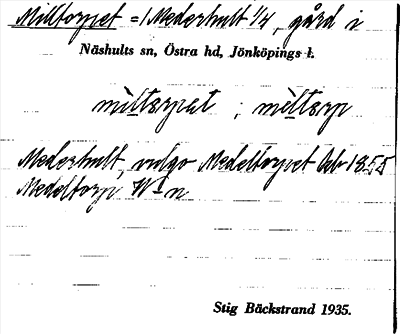 Milltorpet = / Mederhult 1/4, gård i
Näshults sn, Östra hd, Jönköpings l.
mìltsrpat ; mìltsrp
Mederhult, vulgo Medeltorpet 1855
Medeltorp
Stig Bäckstrand 1935.